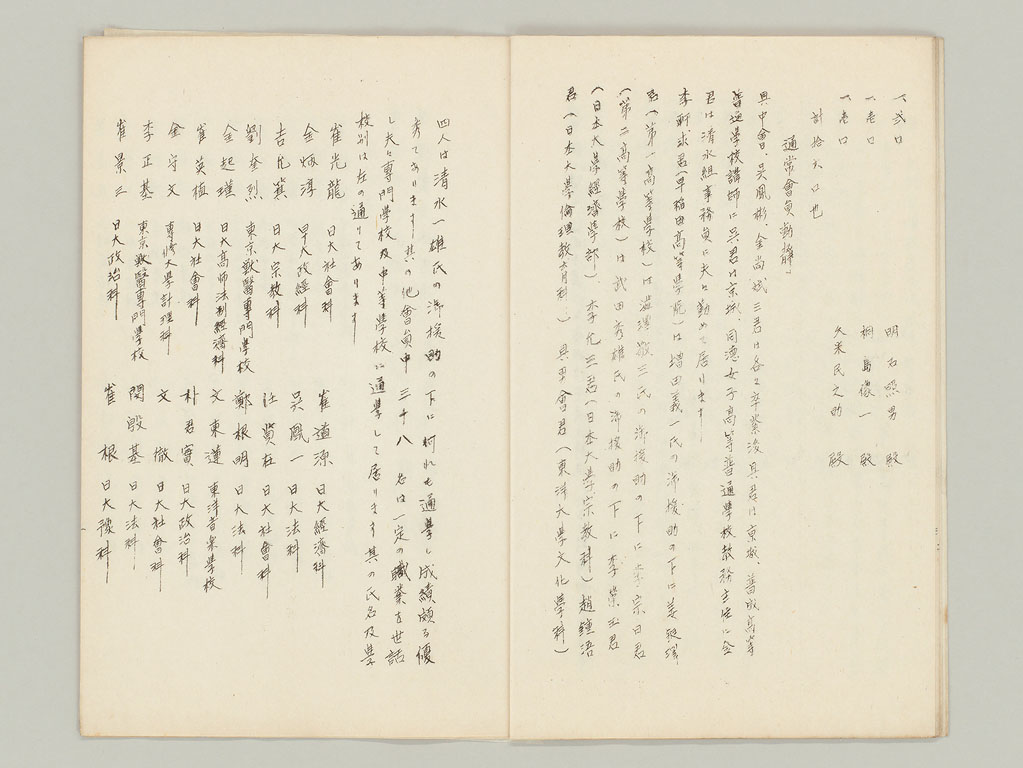 一、弐口 明石照男 殿
一、壱口 桐島像一 殿
一、壱口 久米民之助 殿
計拾六口也
通常會員動静、
具中會、呉鳳彬、金尚弼三君は各々卒業後具君は京城、普成高等
普通學校講師に呉君は京城、同德女子高等普通學校教務主任に金
君は清水組事務員に夫々勤めて居ります
李 求君(早稲田高等學院)は増田義一氏の御援助の下に姜
君(第一高等學校)は澁澤敬三氏の御援助の下に 宗日君
(第二高等學校)は武田秀雄氏の御援助の下に李榮 君
(日本大學經濟學部)、李允三君(日本大學宗教科)趙鍾浯
君(日本大學倫理教育科)具中會君(東洋大學文化學科)
四人は清水一雄氏の御援助の下に何れも通學し成績頗る優
秀であります其の他會員中三十八名は一定の職業を世話
し夫々専門學校及中等學校に通學して居ります其の氏名及學
校別は左の通りであります
崔光龍 日大社會科 崔道源 日大經濟科
金炳淳 早大政經科 呉鳳一 日大法科
吉允箕 日大宗教科 汪貲在 日大社會科
劉奎烈 東京獸醫専門學校 鄭根明 日大法科
金起瓘 日大高師法制經濟科 文東蓮 東洋音楽學校
崔英植 日大社會科 朴君實 日大政治科
金守文 専修大學計理科 文 徹 日大社會科
李正基 東京獸醫専門學校 閔殷基 日大法科
崔景三 日大政治科 崔 根 日大豫科